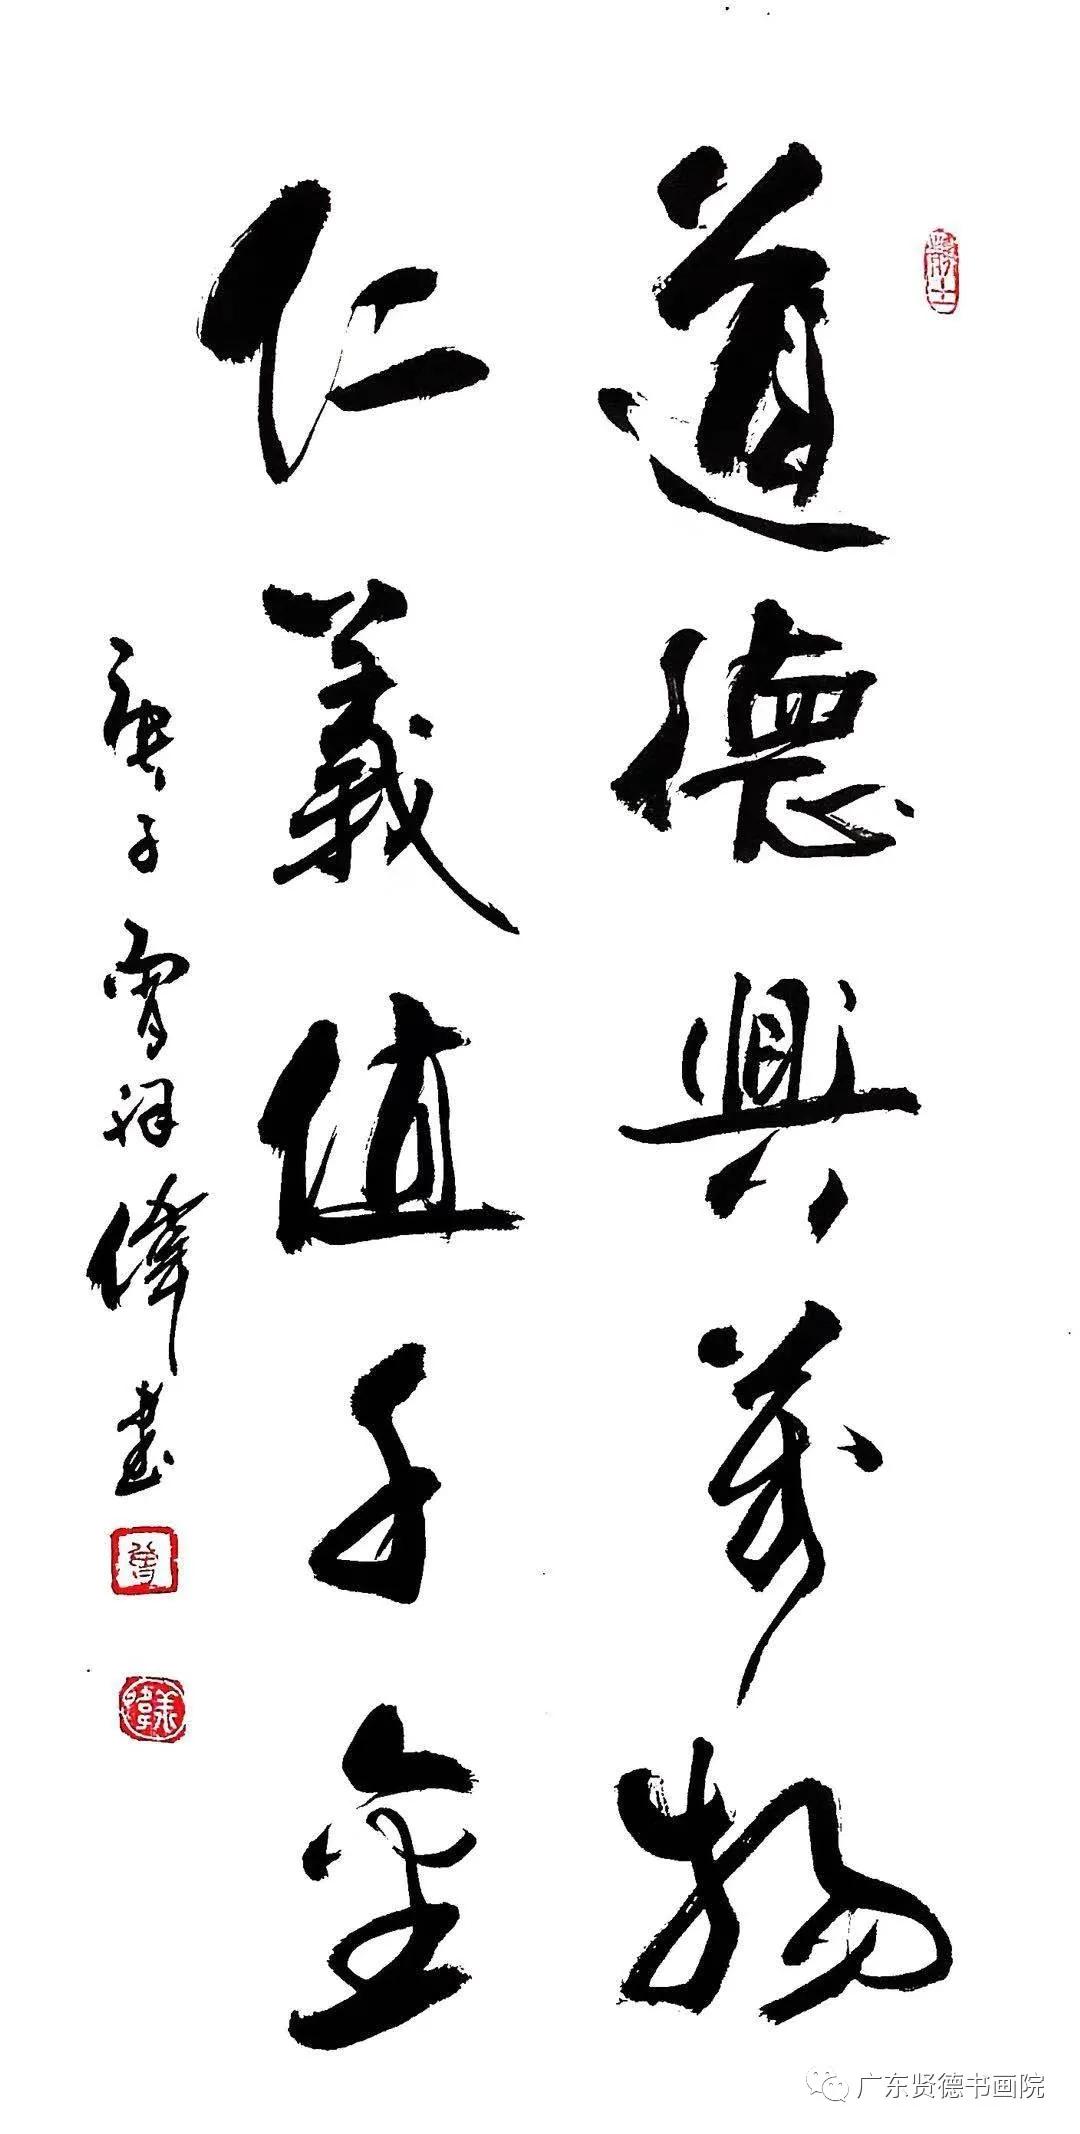 道德興萬物
仁義值千金
庚子曾祥偉書
曾
广东贤德书画院